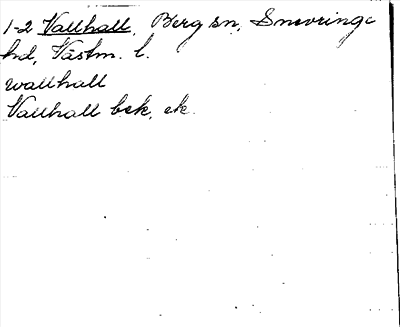 1-2 Vallhall, Berg sn, Snevringe
hd, Västm. l.
wallhall
Vallhall bek, ek.